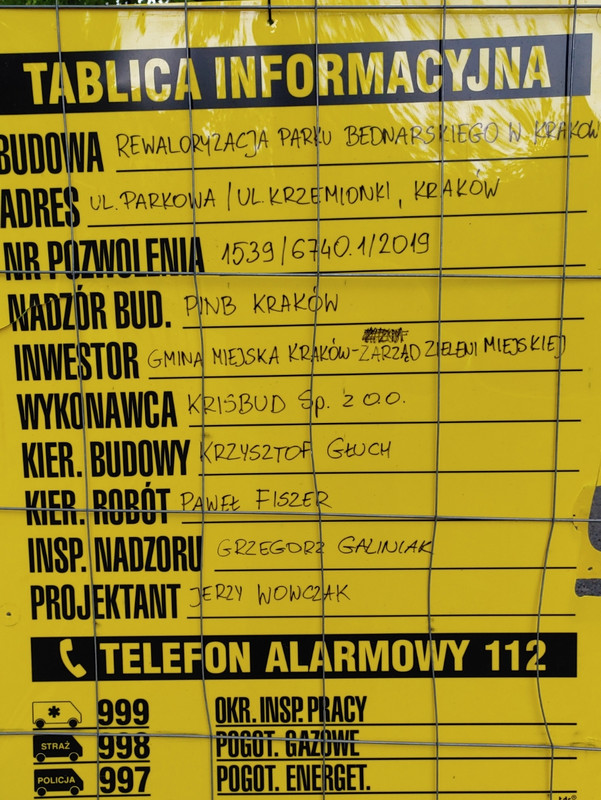 TABLICA INFORMACYJNA
BUDOWA REWALORYZACJA PARKU BEDNARSKIEGO W KRAKOW
ADRES UL. PARKOWA / UL. KRZEMIONKI, KRAKÓW
NR POZWOLENIA 1539/6740.1/2019
NADZÓR BUD. PINB KRAKÓW
INWESTOR GMINA MIEJSKA KRAKÓW-ZARZĄD ZIELENI MIEJSKIEJ
WYKONAWCA KRISBUD Sp. z o.o.
KIER. BUDOWY KRZYSZTOF GŁUCH
KIER. ROBÓT PAWEŁ FISZER
INSP. NADZORU GRZEGORZ GALINIAK
PROJEKTANT JERZY WOWCZAK
TELEFON ALARMOWY 112
999 OKR. INSP. PRACY
STRAŻ 998 POGOT. GAZOWE
POLICJA 997 POGOT. ENERGET.